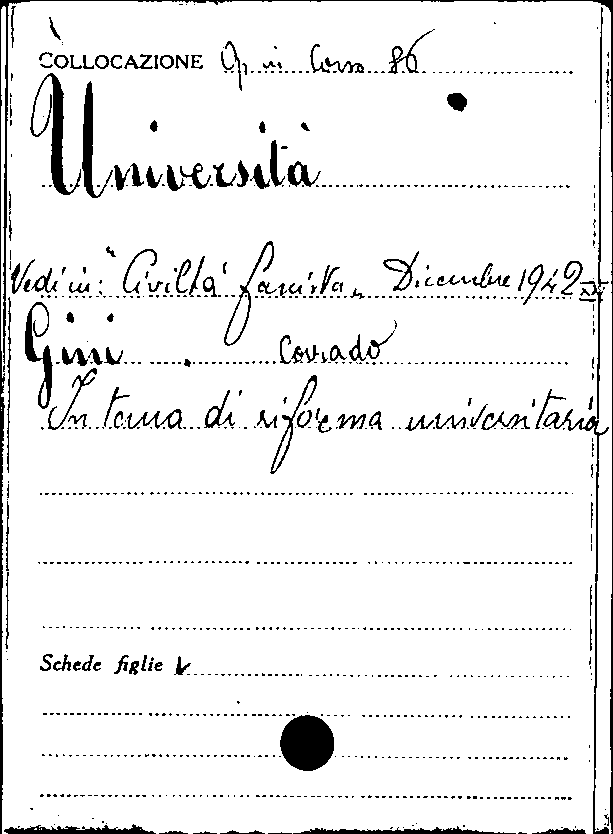 COLLOCAZIONE Op in Corso 86
Università
Vedi in: "Civiltà fascista„ Dicembre 1942 XXI
Gini . Corrado
In tema di riforma universitaria
Schede figlie V